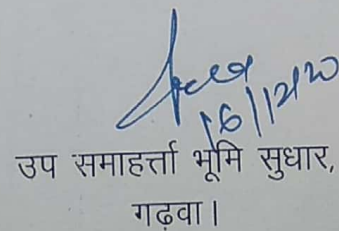 16/12/20
उप समाहर्त्ता भूमि सुधार,
गढ़वा।